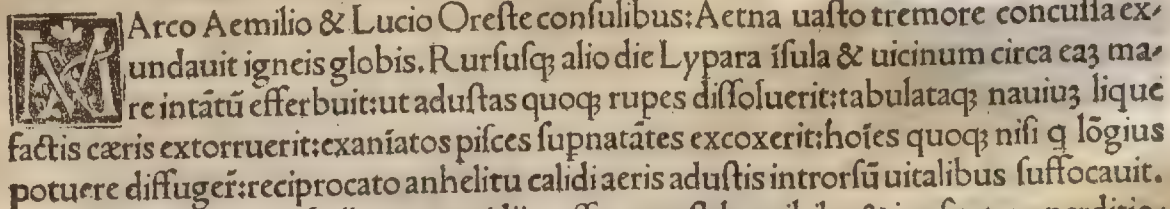 MArco Aemilio & Lucio Oreſte conſulibus: Aetna uaſto tremore concuſſa ex-
undauit igneis globis. Rurſuſqꝫ alio die Lypara iſula & uicinum circa eaꝫ ma-
re intātū efferbuit: ut aduſtas quoqꝫ rupes diſſoluerit: tabulataqꝫ nauiuꝫ lique
factis cæris extorruerit: exanīatos piſces ſupnatātes excoxerit: hoīes quoqꝫ niſi q lōgius
potuere diffuger̃: reciprocato anhelitu calidi aeris aduſtis introrſū uitalibus ſuffocauit.